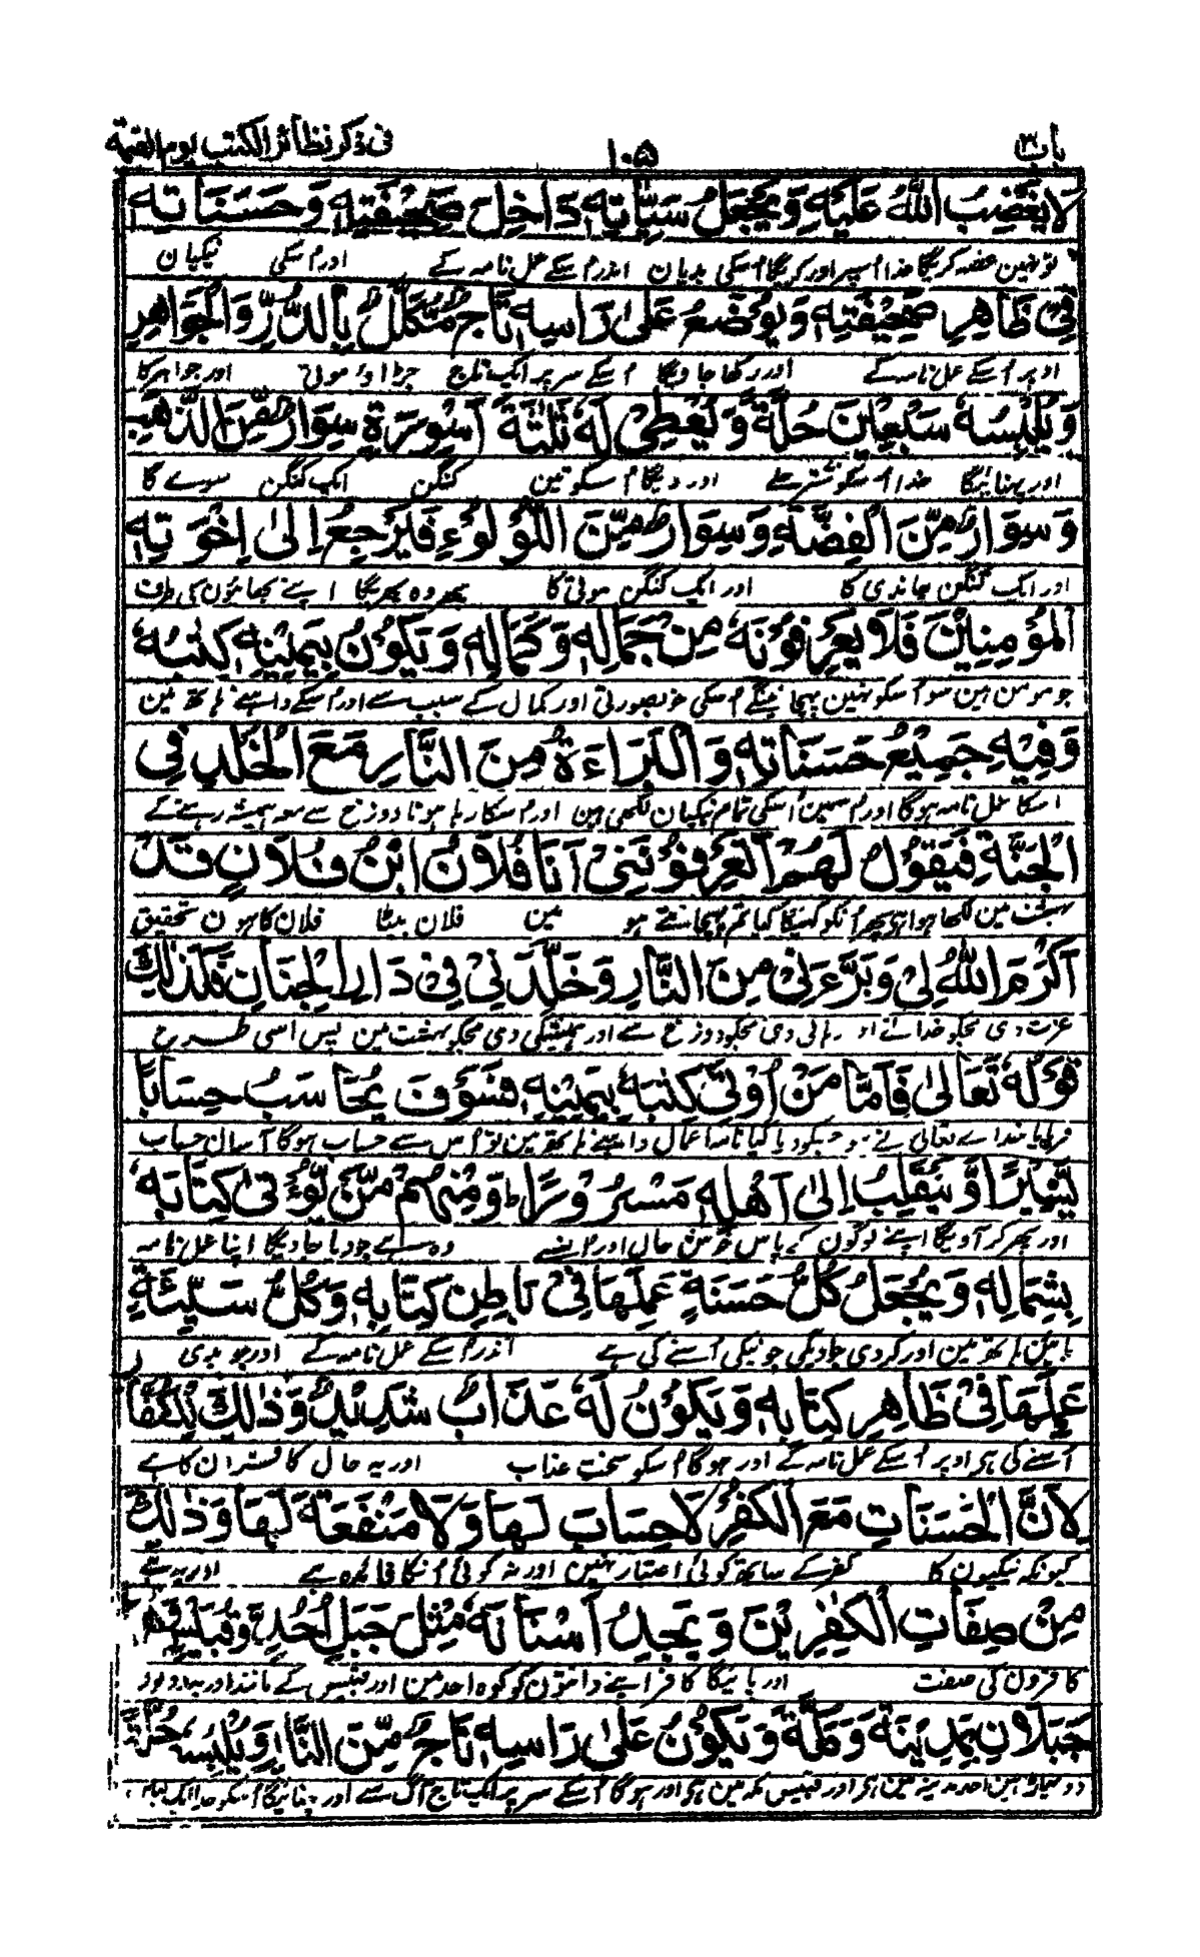 باب ٣ ١٠٥ فی ذکر نظائر الکتب یوم القیمة
لَا یَغْضِبُ اللّٰهُ عَلَیْهِ وَیَجْعَلُ سَیِّاٰتِهٖ دَاخِلَ صَحِیْفَتِهٖ وَحَسَنَاتِهٖ
تو نہین غصہ کریگا خدا اُسپر اور کریگا اُسکی بدیان اندر اُسکے عمل نامہ کے اور اُسکی نیکیان
فِیْ ظَاهِرِ صَحِیْفَتِهٖ وَیُوْضَعُ عَلٰی رَاسِهٖ تَاجٌ مُّکَلَّلٌ بِالدُّرِّ وَالْجَوَاهِرِ
اوپر اُسکے عمل نامہ کے اور رکھا جاویگا اُسکے سر پر ایک تاج جڑاؤ موتی اور جواہر کا
وَیُلْبِسُهٗ سَبْعِیْنَ حُلَّةً وَّیُعْطِیْ لَهٗ ثَلٰثَةَ اَسْوِرَةٍ سِوَارٌ مِّنَ الذَّهَبِ
اور پہنائیگا خدا اُسکو ستر حلے اور دیگا اُسکو تین کنگن ایک کنگن سونے کا
وَسِوَارٌ مِّنَ الْفِضَّةِ وَسِوَارٌ مِّنَ اللُّؤْلُوْءِ فَیَرْجِعُ اِلٰی اِخْوَتِهٖ
اور ایک کنگن چاندی کا اور ایک کنگن موتی کا پھر وہ پھریگا اپنے بھائیون کی طرف
الْمُؤْمِنِیْنَ فَلَا یَعْرِفُوْنَهٗ مِنْ جَمَالِهٖ وَکَمَالِهٖ وَیَکُوْنُ بِیَمِیْنِهٖ کِتٰبُهٗ
جو مومن ہین سو اُسکو نہین پہچانینگے اُسکی خوبصورتی اور کمال کے سبب سے اور اُسکے داہنے ہاتھ مین
وَفِیْهِ جَمِیْعُ حَسَنَاتِهٖ وَالْبَرَاءَةُ مِنَ النَّارِ مَعَ الْخُلْدِ فِی
اسکا عمل نامہ ہوگا اور اُسمین اُسکی تمام نیکیان لکھی ہین اور اُسکا رہا ہونا دوزخ سے معہ ہمیشہ رہنے کے
الْجَنَّةِ فَیَقُوْلُ لَهُمْ اَتَعْرِفُوْنَنِیْ اَنَا فُلَانُ ابْنُ فُلَانٍ قَدْ
بہشت مین لکھا ہوا ہی پھر اُنکو کہیگا کیا تم پہچانتے ہو مین فلان بیٹا فلان کا ہون تحقیق
اَکْرَمَ اللّٰهُ لِیْ وَبَرَّءَنِیْ مِنَ النَّارِ وَخَلَّدَنِیْ فِیْ دَارِ الْجِنَانِ فَکَذٰلِکَ
عزت دی مجکو خدا نے اور رہائی دی مجکو دوزخ سے اور ہمیشگی دی مجکو بہشت مین پس اسی طرح
قَوْلُهٗ تَعَالٰی فَاَمَّا مَنْ اُوْتِیَ کِتٰبَهٗ بِیَمِیْنِهٖ فَسَوْفَ یُحَاسَبُ حِسَابًا
فرمایا خداے تعالی نے جسکو دیا گیا نامۂ اعمال داہنے ہاتھ مین تو اُس سے حساب ہوگا آسان حساب
یَّسِیْرًا وَّیَنْقَلِبُ اِلٰی اَهْلِهٖ مَسْرُوْرًا ط وَمِنْهُمْ مَّنْ یُّوْءْتٰی کِتَابَهٗ
اور پھر کر آویگا اپنے لوگون کے پاس خوش حال اور اُنسے وہ ہے جو دیا جاویگا اپنا عمل نامہ
بِشِمَالِهٖ وَیُجْعَلُ کُلُّ حَسَنَةٍ عَمِلَهَا فِیْ بَاطِنِ کِتَابِهٖ وَکُلُّ سَیِّئَةٍ
بائین ہاتھ مین اور کر دی جاویگی جو نیکی اُسنے کی ہے اندر اُسکے عمل نامہ کے اور جو بدی
عَمِلَهَا فِیْ ظَاهِرِ کِتَابِهٖ وَیَکُوْنُ لَهٗ عَذَابٌ شَدِیْدٌ وَّذٰلِکَ لِلْکُفَّارِ
اُسنے کی ہی اوپر اُسکے عمل نامہ کے اور ہوگا اُسکو سخت عذاب اور یہ حال کافرون کا ہے
لِاَنَّ الْحَسَنَاتِ مَعَ الْکُفْرِ لَا حِسَابَ لَهَا وَلَا مَنْفَعَةَ لَهَا وَذٰلِکَ
کیونکہ نیکیون کا کفر کے ساتھ کوئی اعتبار نہین اور نہ کوئی اُنکا فائدہ ہے اور یہ ہے
مِنْ صِفَاتِ الْکٰفِرِیْنَ وَیَجِدُ اَسْنَانَهٗ مِثْلَ جَبَلِ اُحُدٍ وَّقُبَیْسٍ هُمَا
کافرون کی صفت اور پائیگا کافر اپنے دانتون کو کوہ احد مین اور قبیس کے مانند اور یہ دونو
جَبَلَانِ بِمَدِیْنَةَ وَمَکَّةَ وَیَکُوْنُ عَلٰی رَاسِهٖ تَاجٌ مِّنَ النَّارِ وَیُلْبِسُهٗ حُلَّةً
دو پہاڑ ہین احد مدینہ مین ہی اور قبیس مکہ مین ہی اور ہوگا اُسکے سر پر ایک تاج آگ سے اور پہنائیگا اُسکو خدا ایک